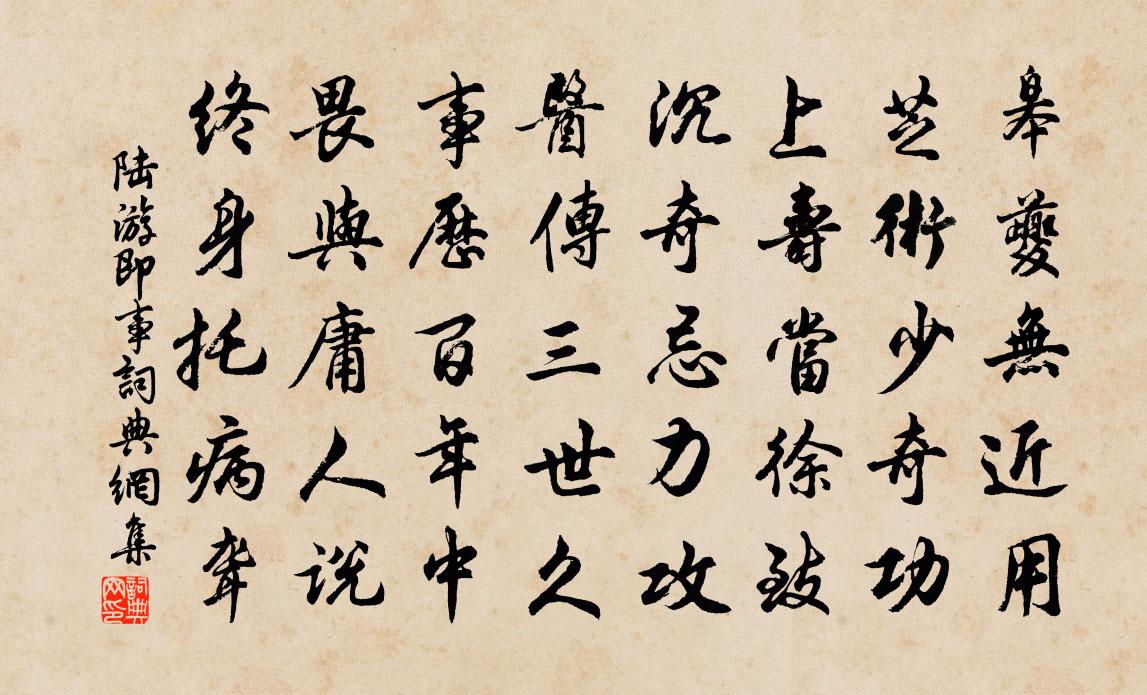 皋夔無近用
芝術少奇功
上壽當徐致
沉奇忌力攻
醫傳三世久
事歷百年中
畏與庸人說
終身托病聾
陆游即事詞典網集
詞典网印